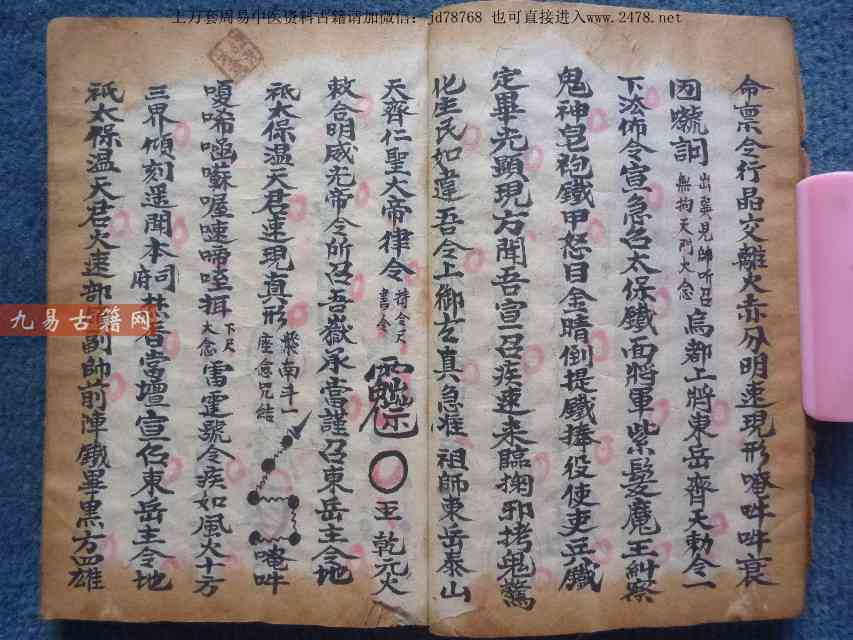 上万套周易中医资料古籍请加微信：jd78768 也可直接进入www.2478.net
九易古籍网
命禀令行品交離火赤分明速現形唵吽吽
因㘄詞 出巽見師听召 無拘天門大念 烏都上將東岳齊天勅令一
下滂佈令宣急召太保鐵面將軍紫髮魔王糾察
鬼神皂袍鐵甲怒目金睛倒提鐵捧役使吏兵
定畢先顯現方聞吾宣召疾速来臨掬邪拷鬼驚
化生民如違吾令上御玄真急准祖師東岳泰山
天齊仁聖大帝律令 書令 ○ 至乾元火
敕合明威元帝令所召吾嶽承當謹召東岳主令地
祇太保温天君速現真形 南斗一 座急咒結 唵吽
嗄唏嚩囌喔嗹啼咥揖 下尺 大念 雷霆號令疾如風火十方
三界傾刻遥聞本司府 當壇宣召東岳主令地
祇太保温天君火速部 副師前陣鐵畢黑方雄